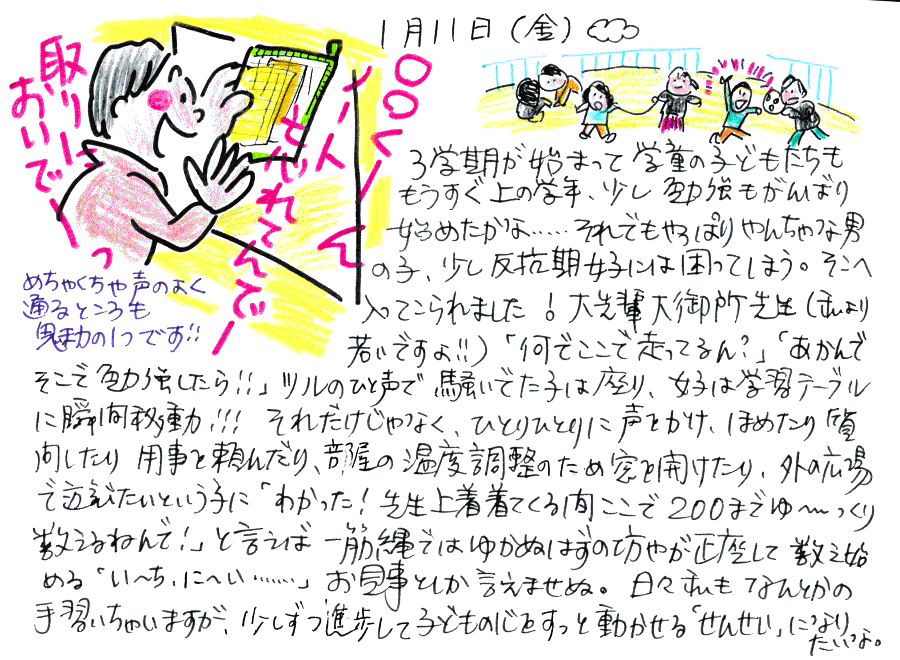 1月11日(金)
〇〇くーん
ノート
とやれてんでー
取りーに
おいでーっ
めちゃくちゃ声のよく
通るところも
魅力の1つです!!
3学期が始まって学童の子どもたちも
もうすぐ上の学年、少し勉強もがんばり
始めたかな……それでもやっぱりやんちゃな男
の子、少し反抗期女子には困ってしまう。そこへ
入ってこられました!大先輩大御所先生(私より
若いですよ!!)「何でここで走ってるん?」「あかんで
そこで勉強したら!!」ツルのひと声で騒いでた子は座り、女子は学習テーブル
に瞬間移動!!! それだけじゃなく、ひとりひとりに声をかけ、ほめたり質
問したり用事を頼んだり、部屋の温度調整のため窓を開けたり、外の広場
で遊びたいという子に「わかった!先生上着着てくる間ここで200までゆ〜っくり
数えるねんで!」と言えば一筋縄ではゆかぬはずの坊やが正座して数え始
める「い〜ち、に〜い……」お見事としか言えませぬ。日々私もなんとかの
手習いちゃいますが、少しずつ進歩して子どもの心をすっと動かせる「せんせい」になり
たいよ。